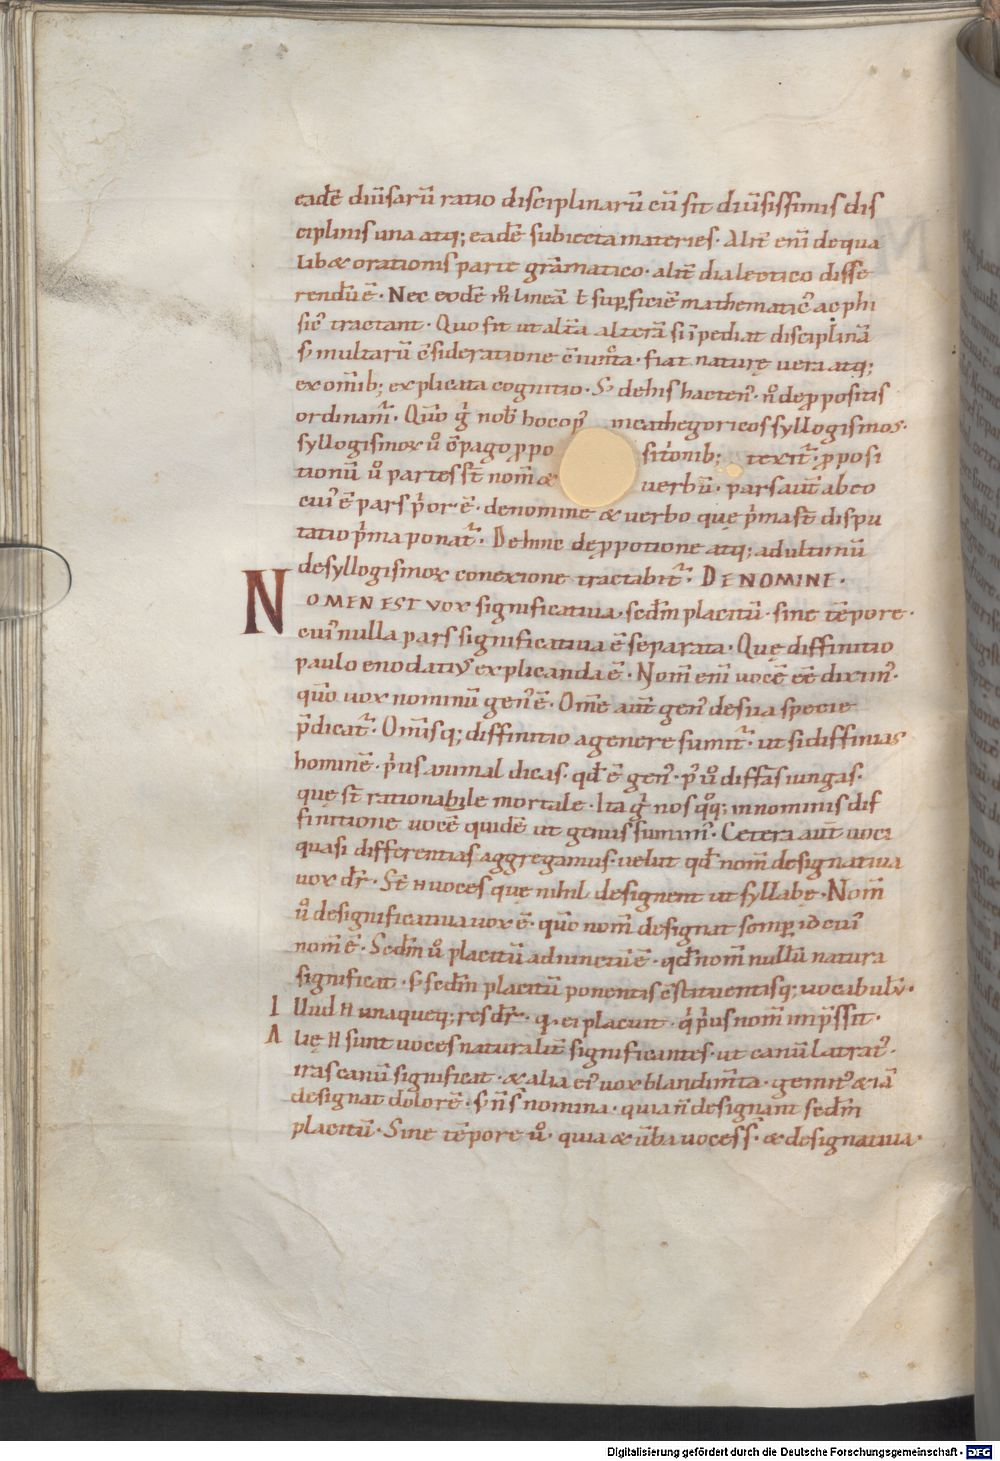 eadē diūsarū ratio disciplinarū cū sit diūsissimis dis
ciplinis una atq; eadē subiecta materies. Alit̄ enī de qua
lib& orationis parte grāmatico. alit̄ dialectico diffe
rendū ē. Nec eodē m̊ lineā ł sup̱ficiē mathematic᾽ ac phi
sic᾽ tractant. Quo fit ut alt̄a alterā si īpediat disciplinā
s; multarū c̄sideratione c̄iunc̊ta. fiat naturę uera atq;
ex omīb; explicata cognitio. S; de his hacten᾽. n̊ de p̱positis
ordinam᾽. Qm̄o g̊ nob̄ hoc op᾽ in cathegoricos syllogismos.
syllogismoꝝ ů c̄pago p̱po sitionib; texit᾽. p̱posi
tionū ů partes st̄ nom̄ & uerbū. pars aut̄ ab eo
cui᾽ ē pars p̊or ē. de nomine & uerbo que p̊ma st̄ dispu
tatio p̊ma ponat᾽. Dehinc de p̱potione atq; ad ultimū
de syllogismoꝝ conexione tractabit᾽. DE NOMINE.
NOMEN EST vox significatiua. sedm̄ placitū. sine tēpore.
cui᾽ nulla pars significatiua ē separata. Quę diffinitio
paulo enodati᾽ explicanda ē. Nom̄ enī uocē eē dixim᾽.
qm̄o uox nominū gen᾽ ē. Om̄e aut̄ gen᾽ de sua specie
p̄dicat᾽. Om̄isq; diffinitio a genere sumit᾽. ut si diffinias
hominē. p̊us animal dicas. qd̄ ē gen᾽. p᾽ ů diff̄as iungas.
quę st̄ rationabile mortale. Ita g̊ nos q̊q; in nominis dif
finitione uocē quidē ut genus sumim᾽. Cetera aut̄ uoci
quasi differentias aggregamus. uelut qd̄ nom̄ designatiua
uox dr̄. St̄ n̄ uoces quę nihil designent ut syllabę. Nom̄
ů designificatiua uox ē. qm̄o nom̄ designat semp̱ id cui᾽
nom̄ ē. Sedm̄ ů placitū adiunctū ē. qd̄ nom̄ nullū natura
significat. s; sedm̄ placitū ponentis c̄stituentisq; uocabulū.
Illud n̄ unaqueq; res dr̄. q; ei placuit. q̊ p̊us nom̄ imp̄ssit.
Alię n̄ sunt uoces naturalit̄ significantes. ut canū latrat᾽.
iras canū significat. & alia ei᾽ uox blandim̄ta. gemit᾽ & iā
designat dolorē. s; n̄ s̄ nomina. quia n̄ designant sedm̄
placitū. Sine tēpore ů. quia & ūba uoces s̄. & designatiua.
Digitalisierung gefördert durch die Deutsche Forschungsgemeinschaft - DFG